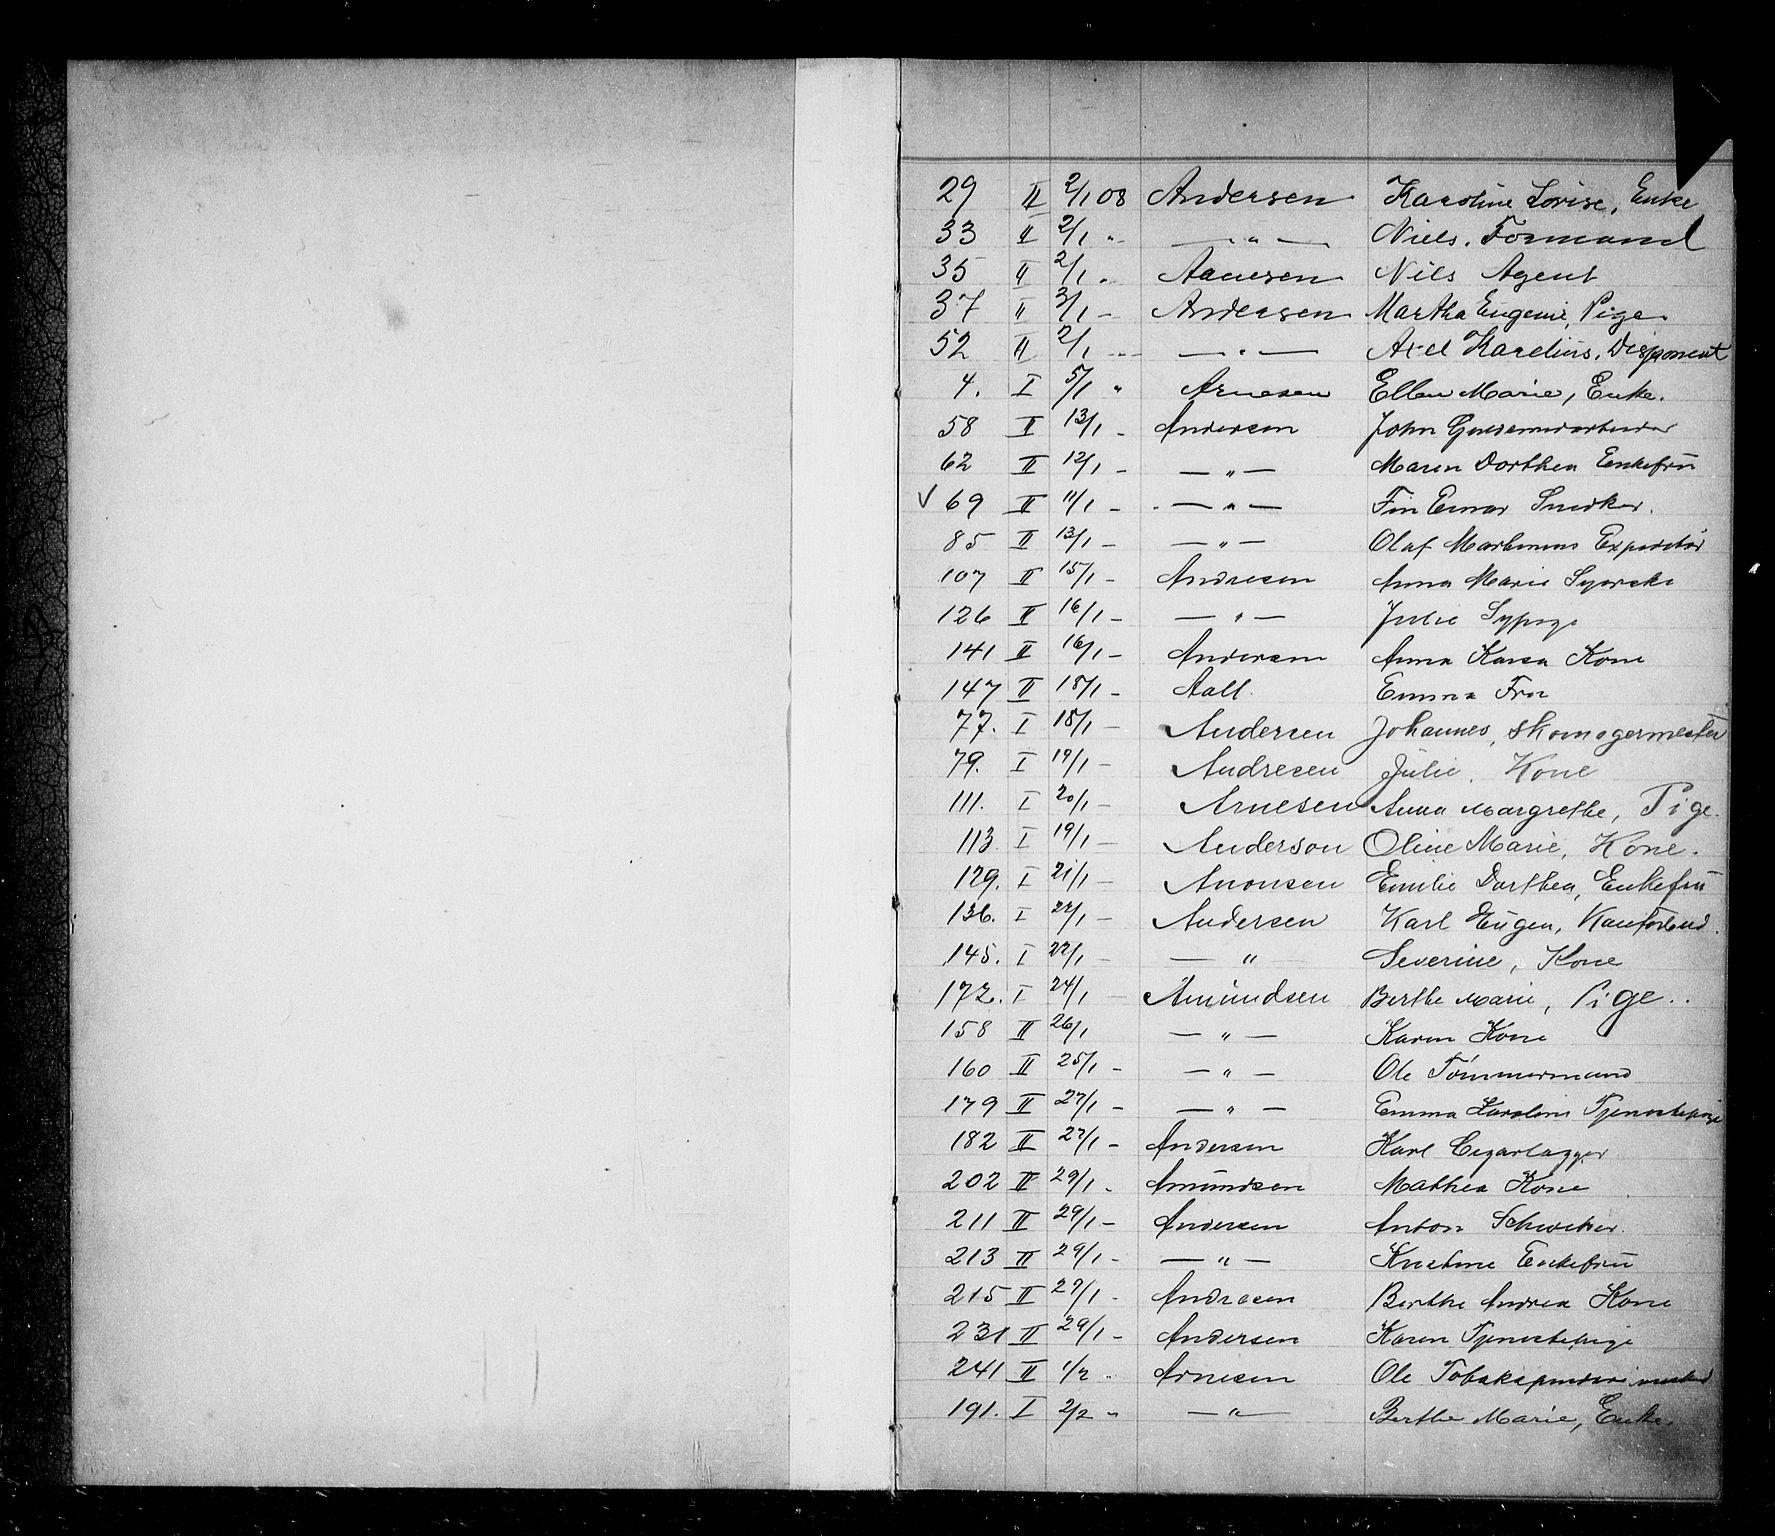 29 II 2/1 08 Andersen Karoline Lovise, Enke
33 II 2/1 " — " — Niels, Formand
35 II 2/1 " Aanesen Nils Agent
37 II 3/1 - Andersen Martha Eugenie, Pige
52 II 2/1 - — " — Axel Karelius, Disponent
4. I 5/1 " Arnesen Ellen Marie, Enke.
58 II 13/1 - Andersen John
62 II 12/1 - — " — Maren Dorthea Enkefru
√ 69 II 11/1 - — " — Fin Einar Snedker.
85 II 13/1 - — " — Olaf Martinius Expeditör
107 II 15/1 - Andresen Anna Marie
126 II 16/1 - — " — Julie Sypige
141 II 16/1 - Andersen Anna Kaisa Kone
147 II 18/1 - Aall. Emma Fru
77. I 18/1 - Andersen Johannes, skomagermester
79. I 19/1 - Andresen Julie, Kone
111. I 20/1 - Arnesen Anna Margrethe, Pige.
113. I 19/1 - Anderson Oline Marie, Kone.
129. I 21/1 - Aronsen Emilie Dorthea, Enkefru
136. I 22/1 - Andersen Karl Eugen, Kontorbud.
145. I 22/1 - — " — Severine, Kone
172. I 24/1 - Amundsen Berthe Marie, Pige..
158 II 26/1 — " — Karen Kone
160 II 25/1 - — " — Ole Tömmermand
179 II 27/1 - — " — Emma Karoline Tjenestepige
182 II 27/1 - Andersen Karl
202 II 29/1 - Amundsen Mathea Kone
211 II 29/1 - Andersen Anton
213 II 29/1 - — " — Kristine Enkefru
215 II 27/1 - Andresen Berthe Andrea Kone
231 II 29/1 - Andersen Karen Tjenestepige
241 II 1/2 " Arnesen Ole
191. I 2/2 " — " — Berthe Marie, Enke.